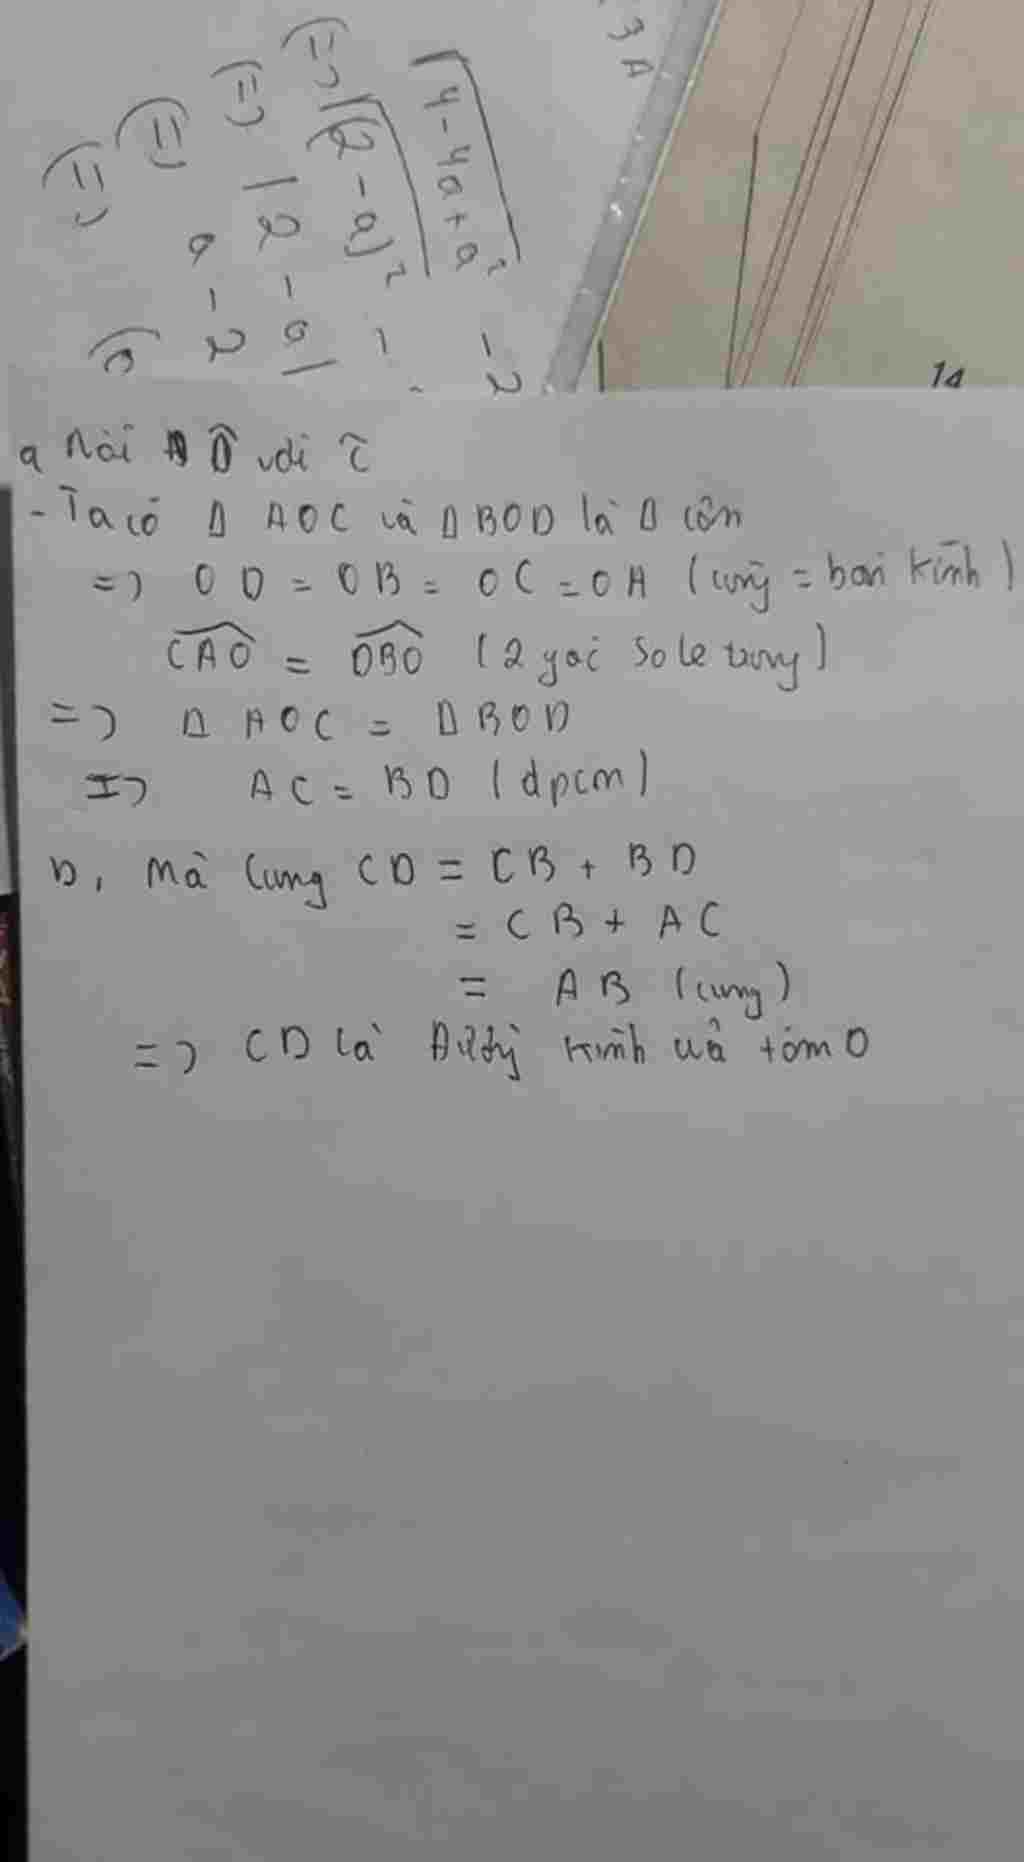 3 A
√4-4a+a² - 2
(=) √(2-a)²
(=) |2-a|
(=) a-2
(=)
14
a Nối Ô với C
- Ta có Δ AOC và Δ BOD là Δ cân
=> OD = OB = OC = OA (cùng = bán kính)
CAO = DBO (2 góc so le trong)
=> Δ AOC = Δ BOD
=> AC = BD (dpcm)
b, Mà Cung CD = CB + BD
= CB + AC
= AB (cung)
=> CD là Đường kính của tâm O